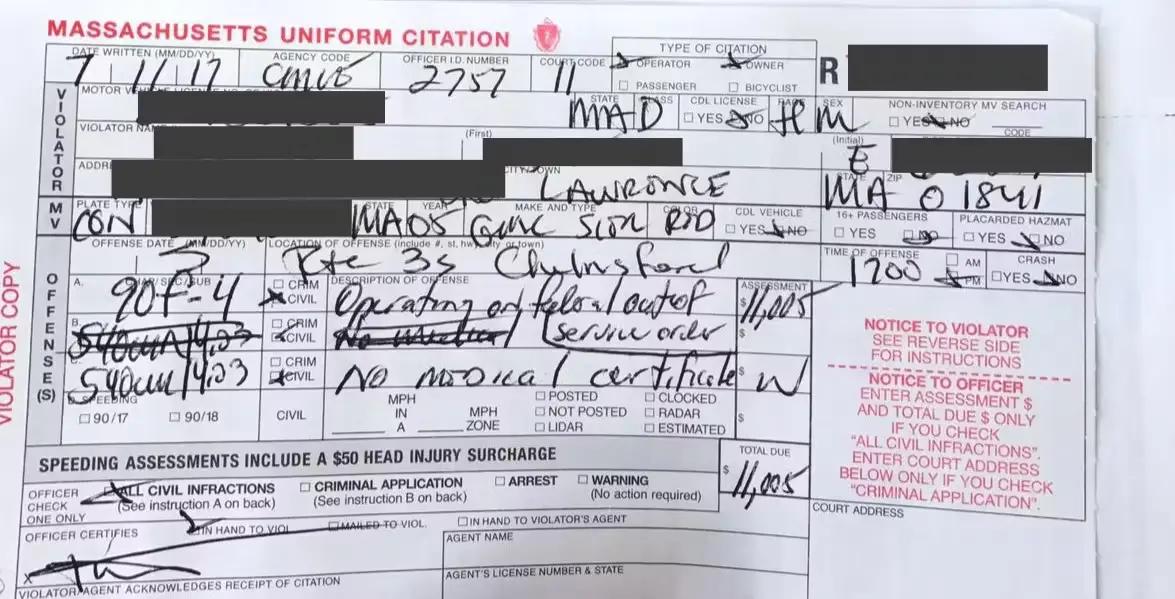 MASSACHUSETTS UNIFORM CITATION
DATE WRITTEN (MM/DD/YY) AGENCY CODE OFFICER I.D. NUMBER COURT CODE TYPE OF CITATION
7 11 17 2757 11 OPERATOR OWNER R
PASSENGER BICYCLIST
VIOLATOR
MOTOR STATE CLASS CDL LICENSE RACE SEX NON-INVENTORY MV SEARCH
MA D YES NO H M YES NO
CODE
VIOLATOR NAME (First) (Initial)
E
ADDR CITY/TOWN STATE ZIP
LAWRENCE MA 01841
MV
PLATE TYPE STATE YEAR MAKE AND TYPE COLOR CDL VEHICLE 16+ PASSENGERS PLACARDED HAZMAT
CON MA 05 GMC RED YES NO YES NO YES NO
OFFENSE DATE (MM/DD/YY) LOCATION OF OFFENSE (include #, st, hwy, city or town) TIME OF OFFENSE AM CRASH
Rte 3s Chelmsford 1200 PM YES NO
OFFENSE(S)
A. CHAP/SEC/SUB CRIM DESCRIPTION OF OFFENSE ASSESSMENT
90F-4 CIVIL Operating on federal out of $11,005
B. CRIM service order $
540CMR14.03 CIVIL No Medical
C. CRIM
540CMR14.03 CIVIL No medical certificate W
D. SPEEDING MPH POSTED CLOCKED
90/17 90/18 CIVIL IN MPH NOT POSTED RADAR $
A ZONE LIDAR ESTIMATED
NOTICE TO VIOLATOR
SEE REVERSE SIDE
FOR INSTRUCTIONS
NOTICE TO OFFICER
ENTER ASSESSMENT $
AND TOTAL DUE $ ONLY
IF YOU CHECK
"ALL CIVIL INFRACTIONS".
ENTER COURT ADDRESS
BELOW ONLY IF YOU CHECK
"CRIMINAL APPLICATION".
SPEEDING ASSESSMENTS INCLUDE A $50 HEAD INJURY SURCHARGE
TOTAL DUE
$11,005
OFFICER CHECK ONE ONLY
ALL CIVIL INFRACTIONS CRIMINAL APPLICATION ARREST WARNING
(See instruction A on back) (See instruction B on back) (No action required)
COURT ADDRESS
OFFICER CERTIFIES IN HAND TO VIOL. MAILED TO VIOL. IN HAND TO VIOLATOR'S AGENT
AGENT NAME
X
AGENT'S LICENSE NUMBER & STATE
VIOLATOR/AGENT ACKNOWLEDGES RECEIPT OF CITATION
VIOLATOR COPY